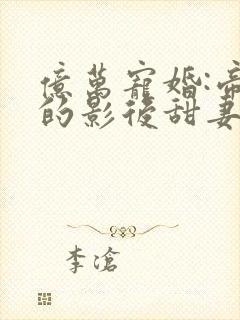 億萬寵婚:帝
的影後甜妻
李滄